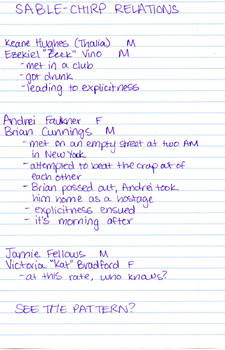 SABLE-CHIRP RELATIONS
Keane Hughes (Thalia) M
Ezekiel "Zeek" Vino M
- met in a club
- got drunk
- leading to explicitness
Andrei Faulkner F
Brian Cunnings M
- met on an empty street at two AM
in New York
- attempted to beat the crap out of
each other
- Brian passed out, Andrei took
him home as a hostage
- explicitness ensued
- it's morning after
Jamie Fellows M
Victoria "Kat" Bradford F
- at this rate, who knows?
SEE THE PATTERN?